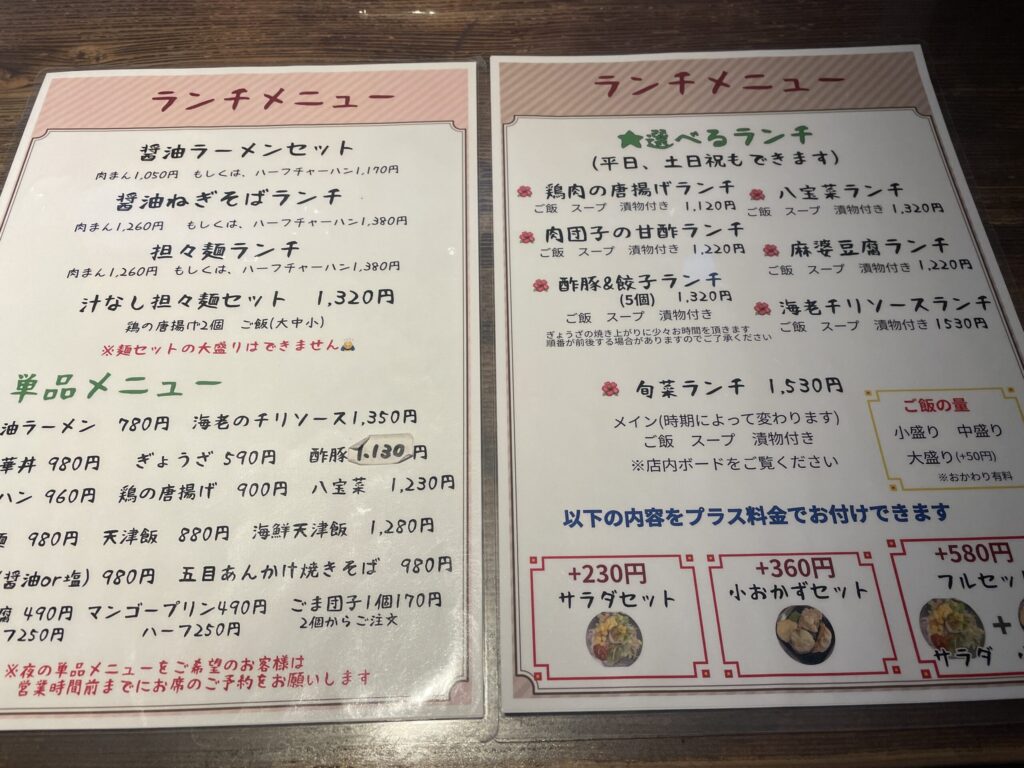 ランチメニュー
醤油ラーメンセット
肉まん1,050円 もしくは、ハーフチャーハン1,170円
醤油ねぎそばランチ
肉まん1,260円 もしくは、ハーフチャーハン1,380円
担々麺ランチ
肉まん1,260円 もしくは、ハーフチャーハン1,380円
汁なし担々麺セット 1,320円
鶏の唐揚げ2個 ご飯(大中小)
※麺セットの大盛りはできません🙇
単品メニュー
油ラーメン 780円 海老のチリソース1,350円
華丼 980円 ぎょうざ 590円 酢豚 1.130円
ハン 960円 鶏の唐揚げ 900円 八宝菜 1,230円
980円 天津飯 880円 海鮮天津飯 1,280円
(醤油or塩) 980円 五目あんかけ焼きそば 980円
腐 490円 マンゴープリン490円 ごま団子1個170円
フ250円 ハーフ250円 2個からご注文
※夜の単品メニューをご希望のお客様は
営業時間前までにお席のご予約をお願いします
ランチメニュー
★選べるランチ
(平日、土日祝もできます)
鶏肉の唐揚げランチ
ご飯 スープ 漬物付き 1,120円
肉団子の甘酢ランチ
ご飯 スープ 漬物付き 1,220円
酢豚&餃子ランチ
(5個) 1,320円
ご飯 スープ 漬物付き
ぎょうざの焼き上がりに少々お時間を頂きます
順番が前後する場合がありますのでご了承ください
八宝菜ランチ
ご飯 スープ 漬物付き 1,320円
麻婆豆腐ランチ
ご飯 スープ 漬物付き 1,220円
海老チリソースランチ
ご飯 スープ 漬物付き 1530円
旬菜ランチ 1,530円
メイン(時期によって変わります)
ご飯 スープ 漬物付き
※店内ボードをご覧ください
ご飯の量
小盛り 中盛り
大盛り(+50円)
※おかわり有料
以下の内容をプラス料金でお付けできます
+230円
サラダセット
+360円
小おかずセット
+580円
フルセット
+
サラダ